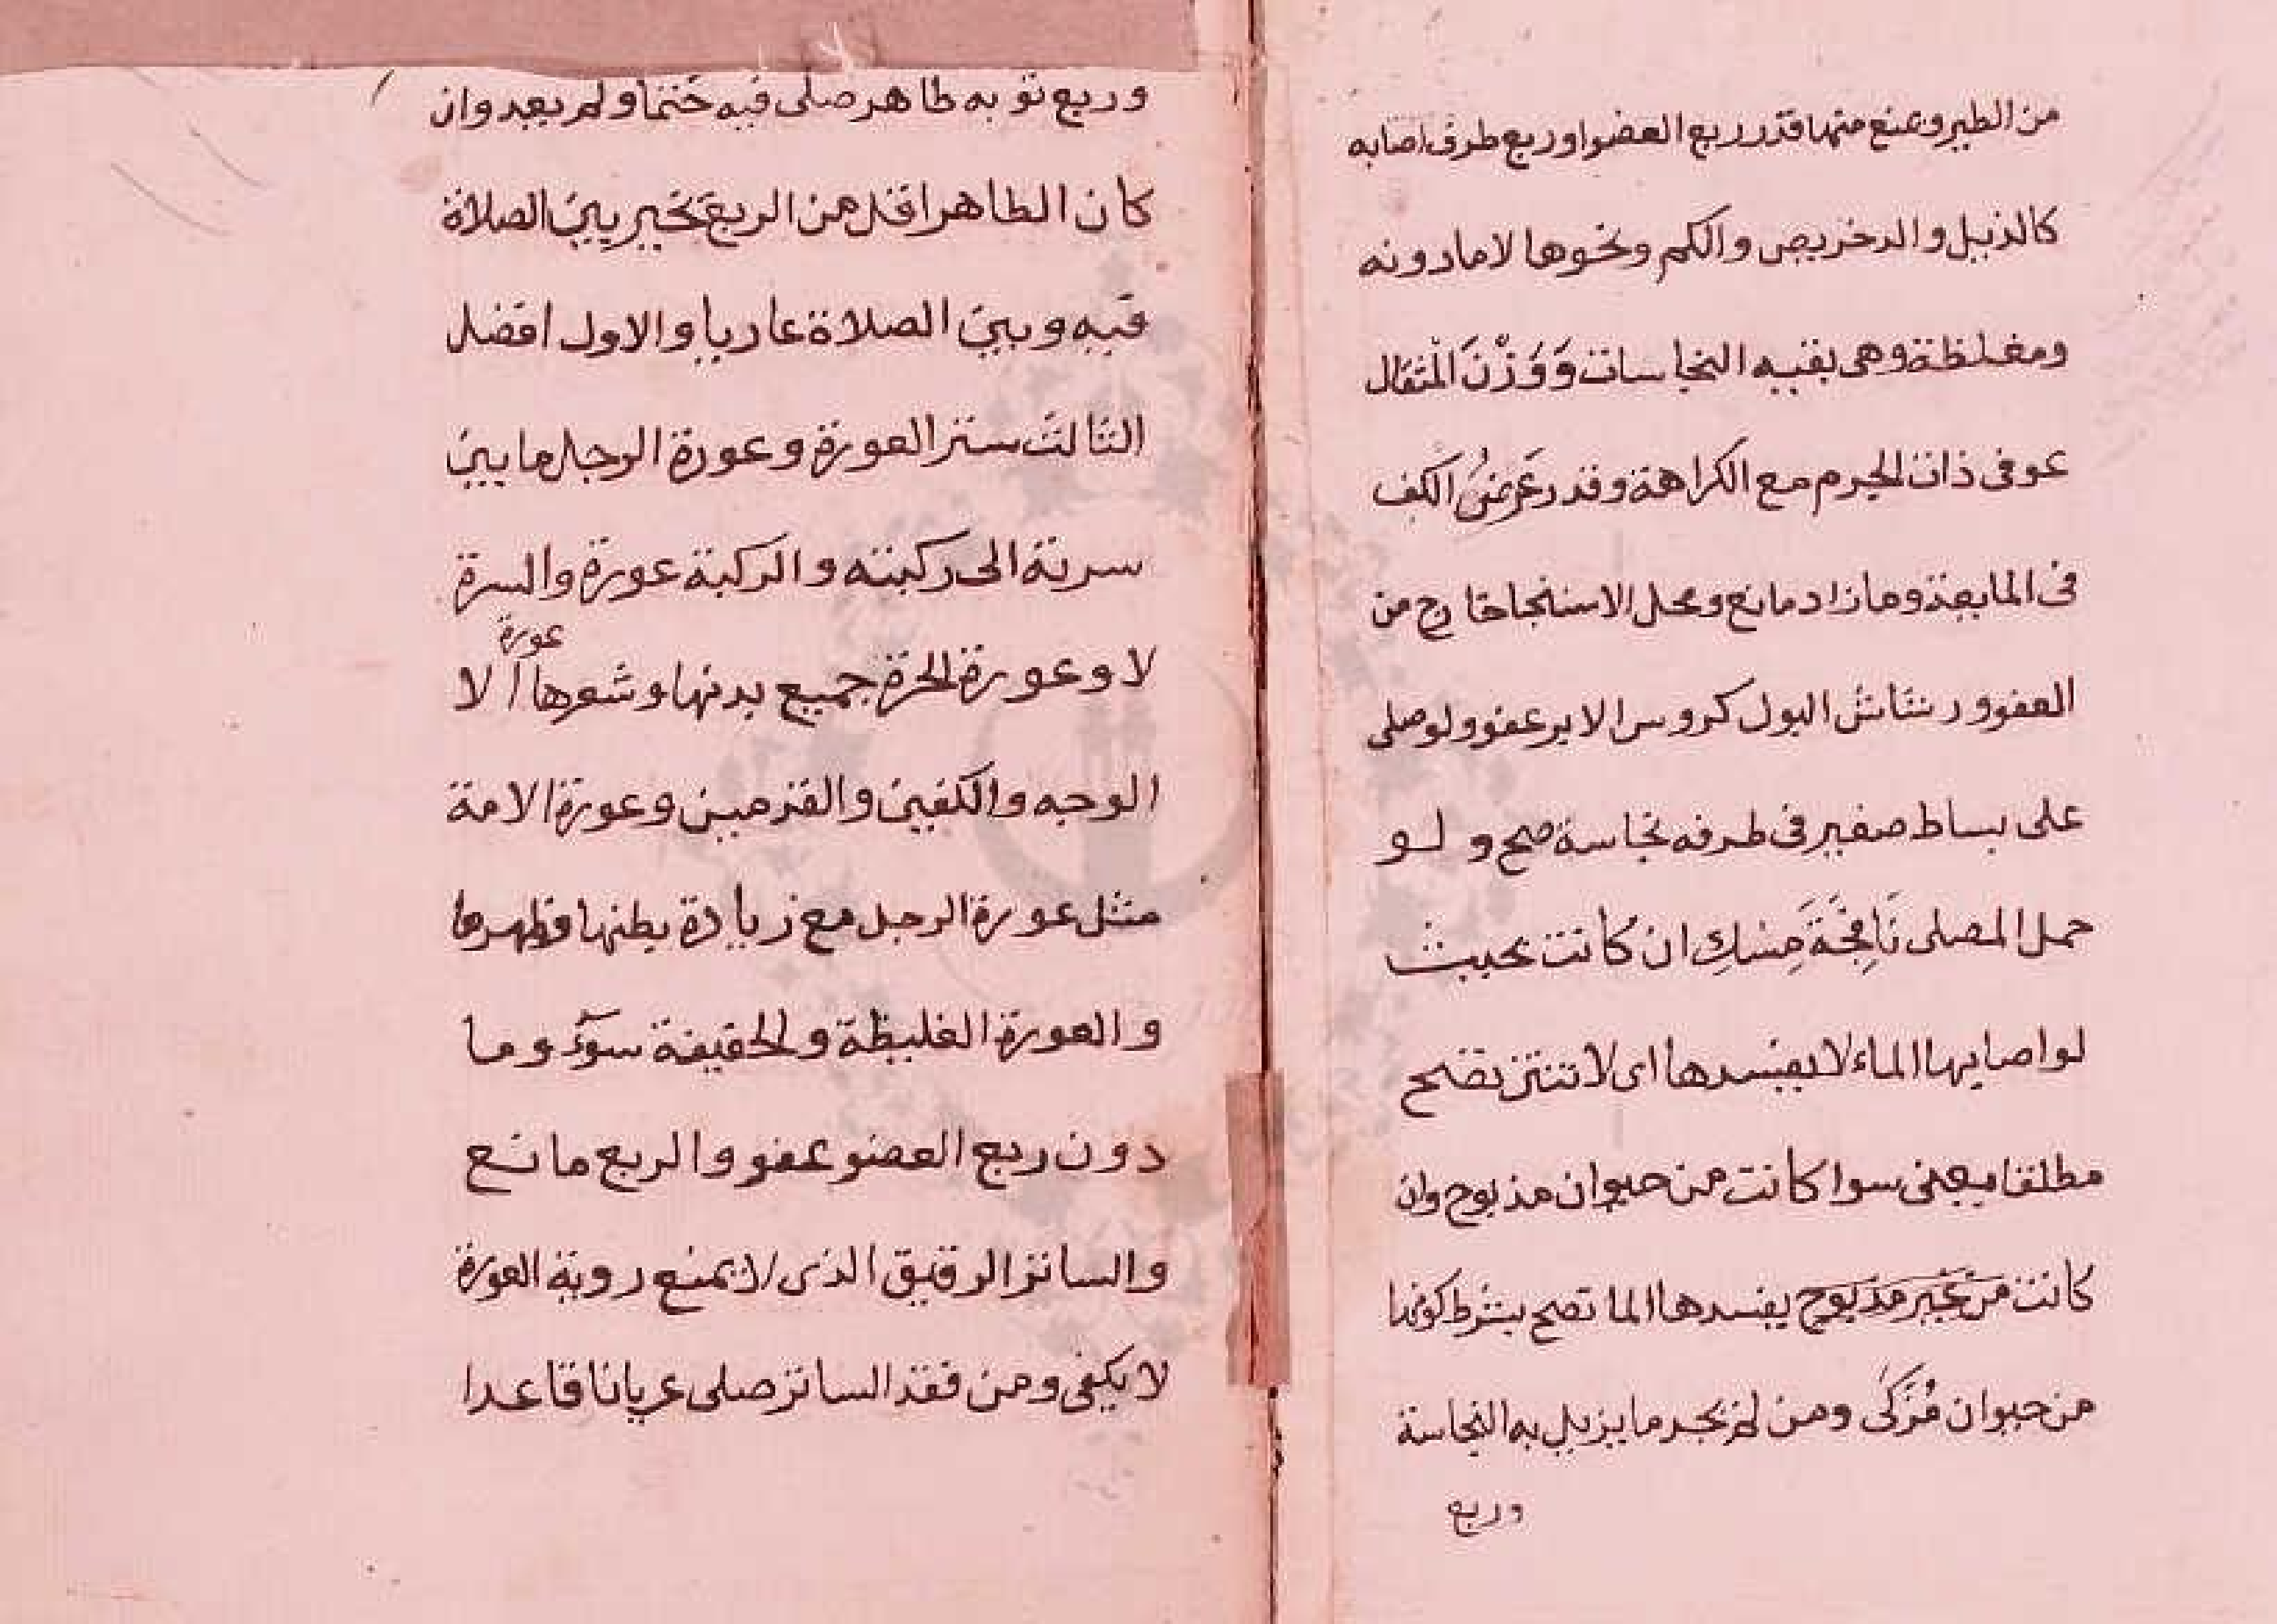 من الطير ويمنع منها قدر ربع العضو او ربع طرف اصابه
كالذيل والدخريص والكم ونحوها لا ما دونه
ومغلظة وهى بقيه النجاسات وَوَزْنَ المثقال
عوفى ذات الجرم مع الكراهة وقدر عَرضُ الكف
فى المايعة وما زاد مانع ومحل الاستنجا خارج من
العفو ورشاش البول كروس الابر عفو ولو صلى
على بساط صغير فى طرفه نجاسة صح ولو
حمل المصلى نَافِجَةَ مِسْكِ ان كانت بحيث
لو اصابها الماء لا يفسدها اى لا تنتن تصح
مطلقا يعنى سوا كانت من حيوان مذبوح وان
كانت من غير مذبوح يفسدها الما تصح بشرط كونها
من حيوان مُزَكى ومن لم يجد ما يزيل به النجاسة
وربع
وربع ثوبه طاهر صلى فيه حتما ولم يعد وان
كان الطاهر اقل من الربع تخير بين الصلاة
فيه وبين الصلاة عاريا والاول افضل
الثالث ستر العورة وعورة الرجل ما بين
سرته الى ركبته والركبة عورة والسرة
لا وعورة الحرة جميع بدنها وشعرها عورة الا
الوجه والكفين والقدمين وعورة الامة
مثل عورة الرجل مع زيادة بطنها وظهرها
والعورة الغليظة والخفيفة سوآء وما
دون ربع العضو عفو والربع مانع
والساتر الرقيق الذى لا يمنع روية العورة
لا يكفى ومن فقد الساتر صلى عريانا قاعدا